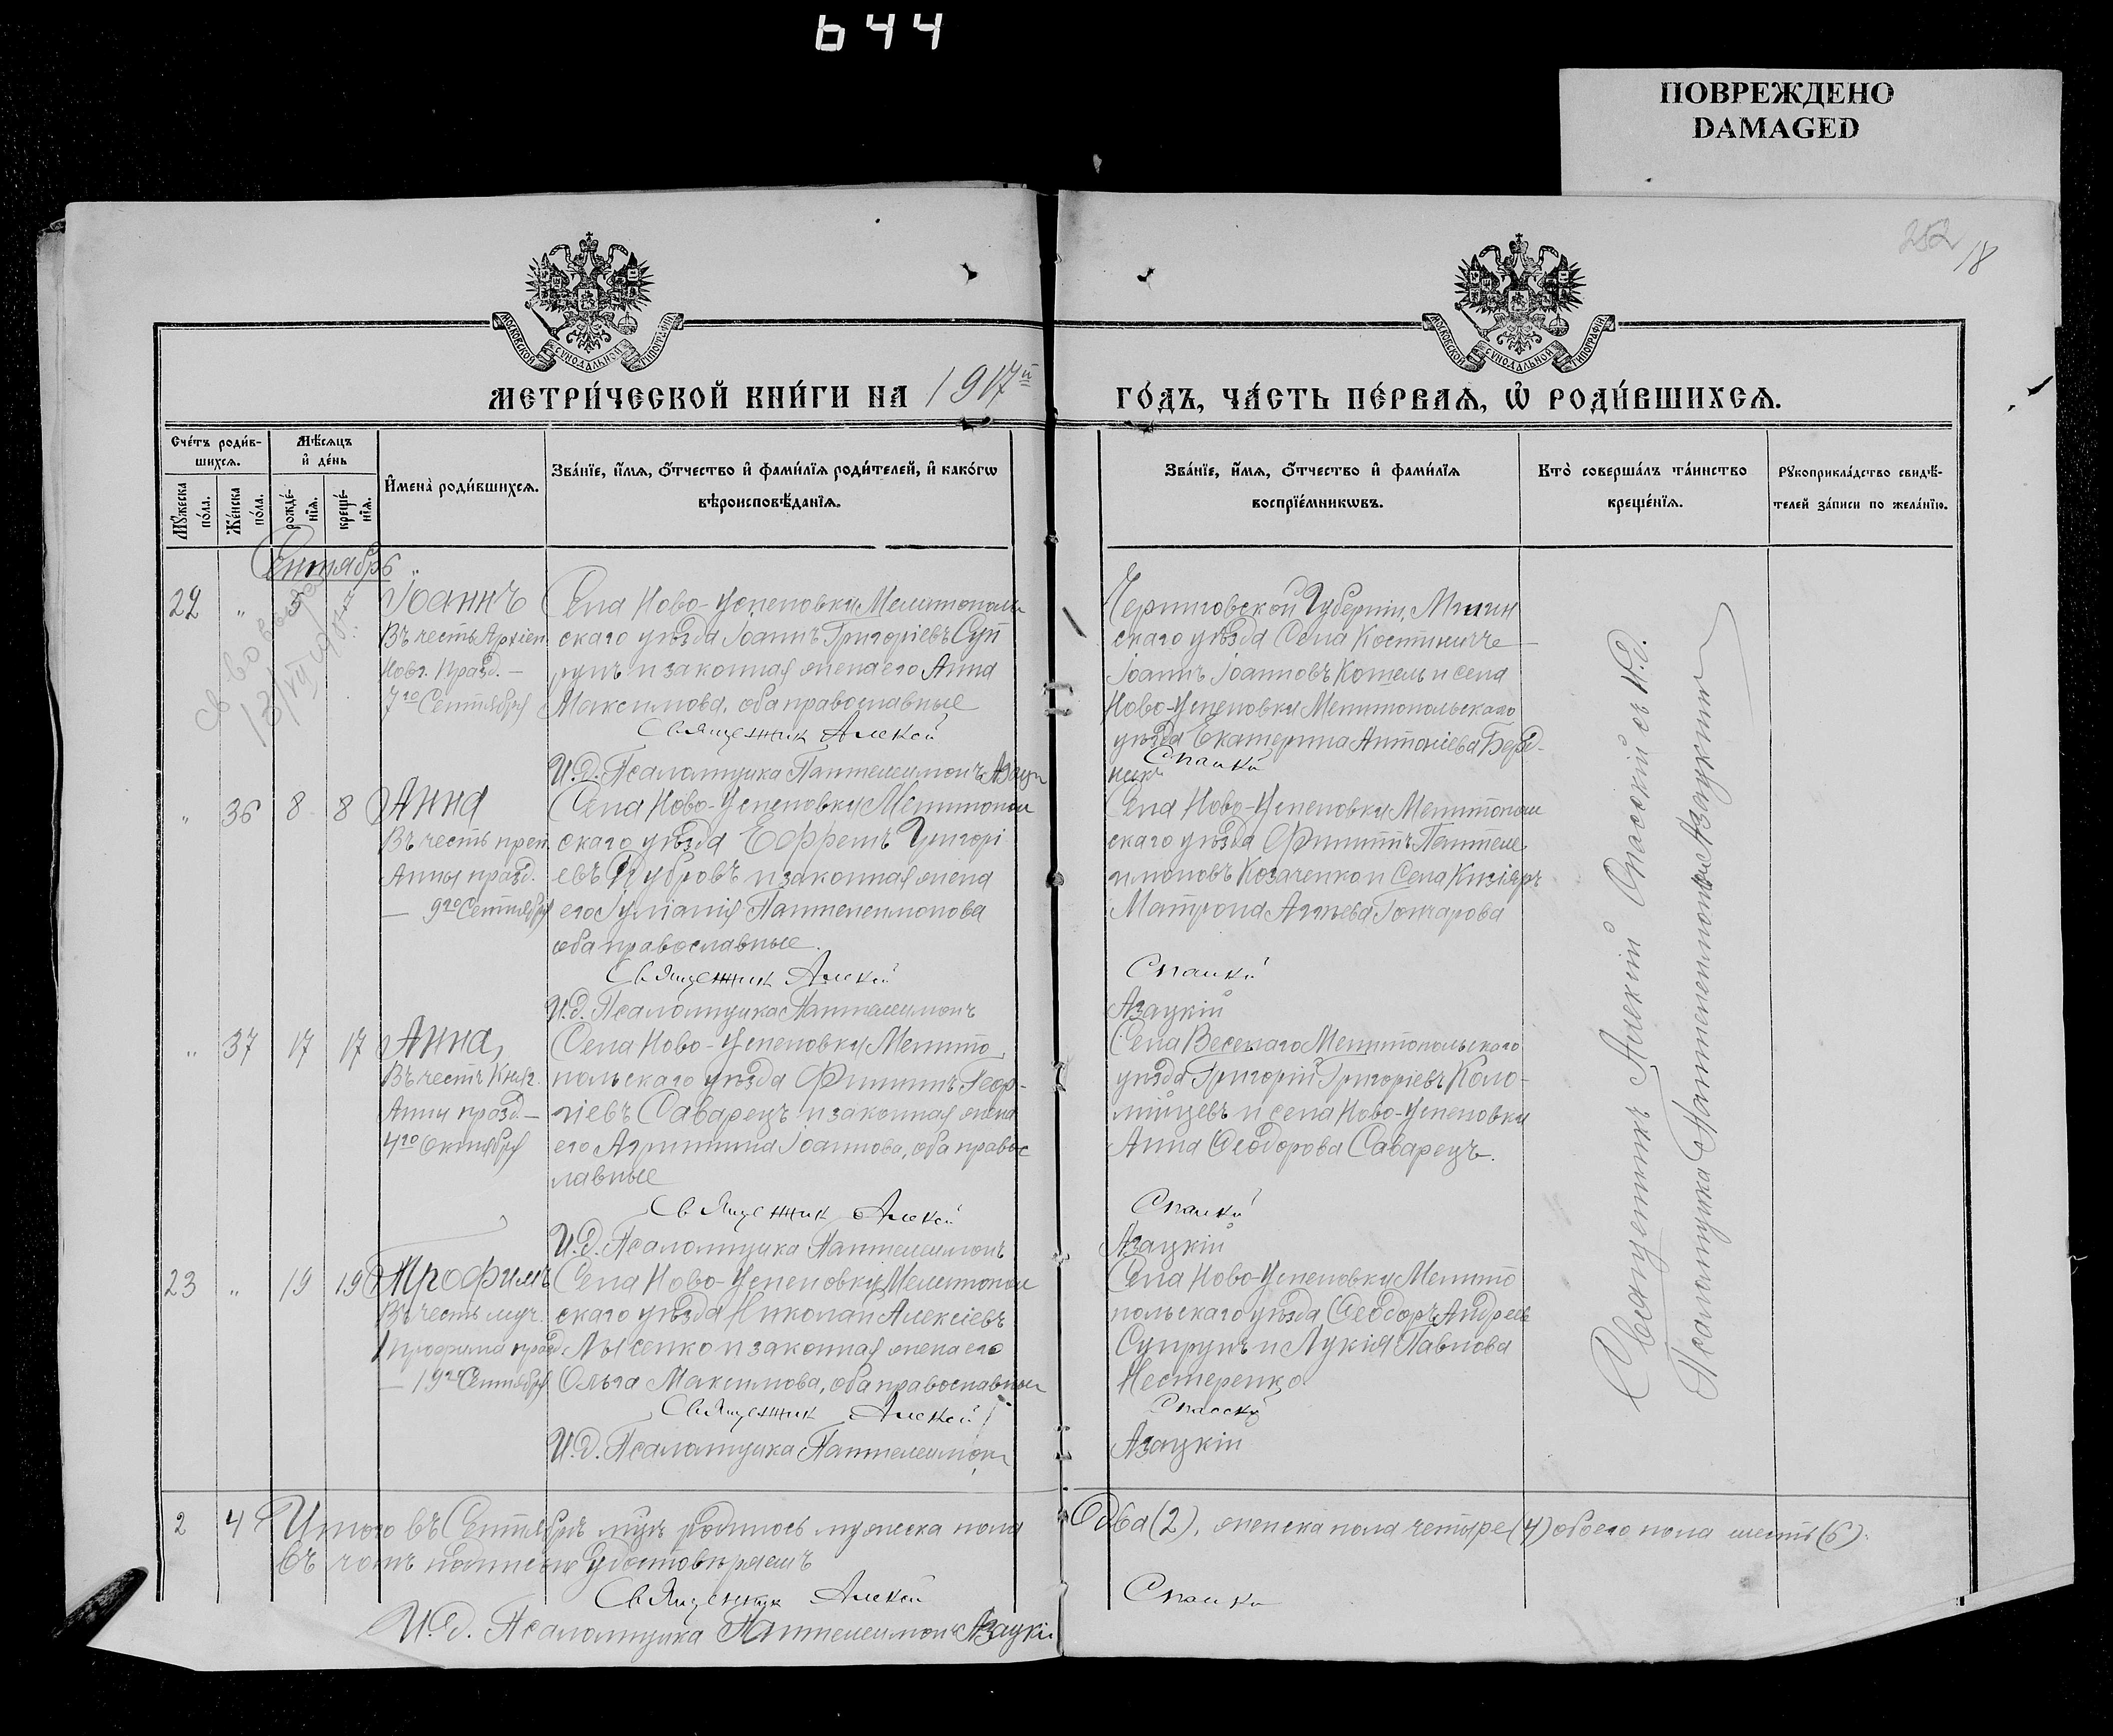 644
ПОВРЕЖДЕНО
DAMAGED
252
18
МОСКОВСКОЙ СѴНОДАЛЬНОЙ ТИПОГРАФІИ
МОСКОВСКОЙ СѴНОДАЛЬНОЙ ТИПОГРАФІИ
МЕТРИ́ЧЕСКОЙ КНИ́ГИ НА 1917й ГО́ДЪ, ЧА́СТЬ ПЕ́РВАѦ, Ѽ РОДИ́ВШИХСѦ.
Сче́тъ роди́в-
шихсѧ.
Мѣ́сѧцъ
и҆ де́нь
Мꙋ́жеска
по́ла.
Же́нска
по́ла.
рожде́-
нїѧ.
креще́-
нїѧ.
И҆мена̀ роди́вшихсѧ.
Зва́нїе, и҆́мѧ, ѻ҆́тчество и҆ фами́лїѧ роди́телей, и҆ како́гѡ
вѣроисповѣ́данїѧ.
Зва́нїе, и҆́мѧ, ѻ҆́тчество и҆ фами́лїѧ
воспрїе́мникѡвъ.
Кто̀ соверша́лъ та́инство
креще́нїѧ.
Рꙋкоприкла́дство свидѣ́-
телей за́писи по жела́нїю.
Сентябрь
22 " Іоаннъ
Въ честь Архіеп.
Новг. Празд. —
7го Сентября
Села Ново-Успеновки Мелитополь
скаго уѣзда Іоаннъ Григоріевъ Суп
рунъ и законная жена его Анна
Максимова, оба православные
Священник Алексей
И.д. Псаломщика Пантелеимонъ Азацк
Черниговской Губерніи, Мглин
скаго уѣзда Села Костиничъ
Іоаннъ Іоанновъ Котель и села
Ново-Успеновки Мелитопольскаго
уѣзда Екатерина Антоніева Берд-
никъ
Спасский
" 36 8 8 Анна
Въ честь преп.
Анны празд.
— 9го Сентября
Села Ново-Успеновки Мелитополь
скаго уѣзда Ефремъ Григорі
евъ Дубровъ и законная жена
его Іуліанія Пантелеимонова
оба православные.
Священник Алексей
И.д. Псаломщика Пантелеимонъ
Села Ново-Успеновки Мелитополь
скаго уѣзда Филиппъ Пантеле
имоновъ Козаченко и Села Кизіяръ
Матрона Агѣева Гончарова
Спасский
Азацкій
" 37 17 17 Анна,
Въ честь Княг.
Анны празд. —
4го Октября
Села Ново-Успеновки Мелито
польскаго уѣзда Филиппъ Геор-
гіевъ Саварецъ и законная жена
его Агриппина Іоаннова, оба правос
лавные
Священник Алексей
И.д. Псаломщика Пантелеимонъ
Села Веселаго Мелитопольскаго
уѣзда Григорій Григоріевъ Коло-
мійцевъ и села Ново-Успеновки
Анна Ѳеодорова Саварецъ.
Спасский
Азацкій
23 " 19 19 Трофимъ
Въ честь муч.
Трофима празд.
— 19го Сентября
Села Ново-Успеновки Мелитополь
скаго уѣзда Николай Алексіевъ
Лысенко и законная жена его
Ольга Максимова, оба православные
Священник Алексей
И.д. Псаломщика Пантелеимонъ
Села Ново-Успеновки Мелито
польскаго уѣзда Ѳеодоръ Андреевъ
Супрунъ и Лукія Павлова
Нестеренко
Спасский
Азацкій
Священникъ Алексій Спасскій съ И.д.
Псаломщика Пантелеимономъ Азацкимъ
2 4 Итого въ Сентябрѣ м-цѣ родилось мужеска пола два (2), женска пола четыре (4) обоего пола шесть (6).
въ чемъ подписомъ удостовѣряемъ
Священник Алексей Спасский
И.д. Псаломщика Пантелеимонъ Азацкій